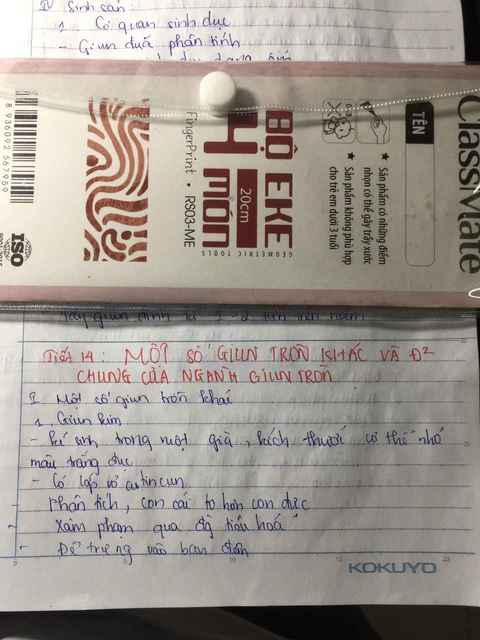 IV Sinh sản
1. Cơ quan sinh dục
- Giun đũa phân tính
ClassMate
TÊN
★ Sản phẩm có những điểm
nhọn có thể gây trầy xước
★ Sản phẩm không phù hợp
cho trẻ em dưới 3 tuổi
BỘ EKE
4 MÓN
20cm
GEOMETRIC TOOLS
FingerPrint • RS03-ME
8 936092 567959
ISO
9001:2015
Tiết 14: MỘT SỐ GIUN TRÒN KHÁC VÀ Đ²
CHUNG CỦA NGÀNH GIUN TRÒN
I Một số giun tròn khác
1, Giun kim
- kí sinh trong ruột già, kích thước cơ thể nhỏ
màu trắng đục
- Có lớp vỏ cuticun
- Phân tích, con cái to hơn con đực
- Xâm phạm qua độ tiêu hoá
- Đẻ trứng vào ban đêm
KOKUYO